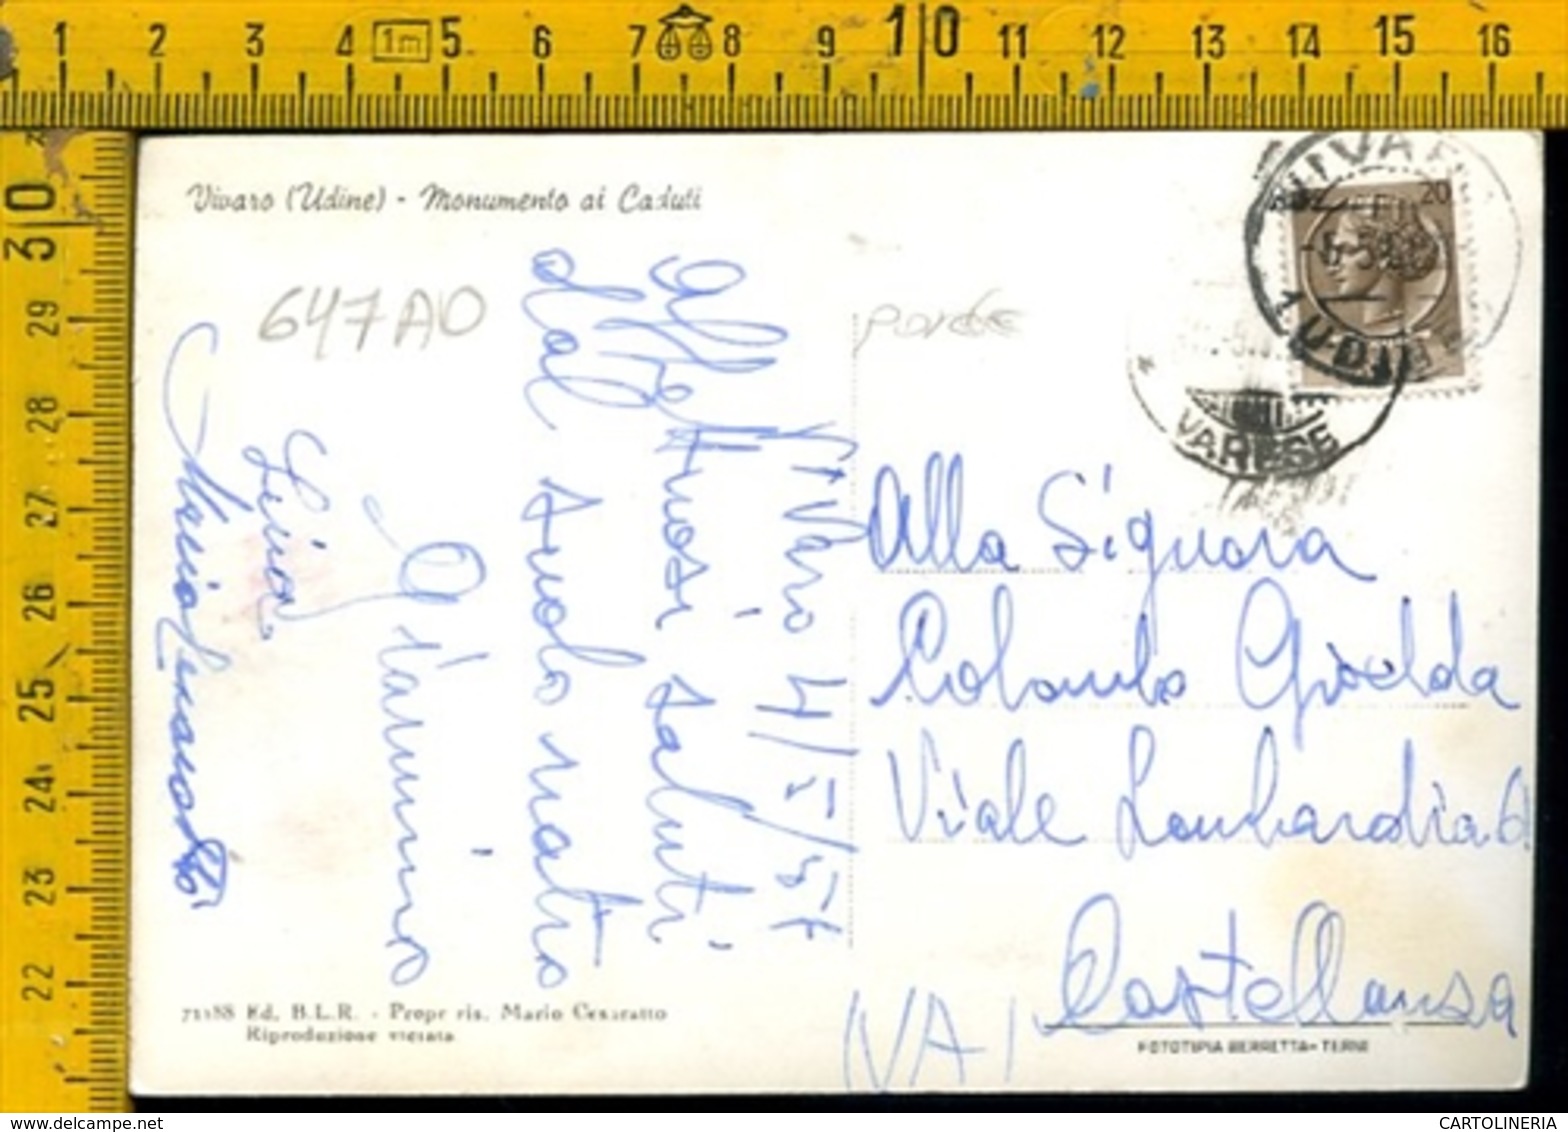 1 2 3 4 1m 5 6 7 8 9 10 11 12 13 14 15 16
30 29 28 27 26 25 24 23 22
Vivaro (Udine) - Monumento ai Caduti
647AD
VIVARO
20
UDINE
VARESE
Vivaro 4/5/57
Affettuosi saluti
dal suolo natio
Lina
Alla Signora
Colombo Gioelda
Viale Lombardia 6
Castellanza
(VA)
71188 Ed. B.L.R. - Propr ris. Mario Cesaratto
Riproduzione vietata
FOTOTIPIA BERRETTA - TERNI
CARTOLINERIA